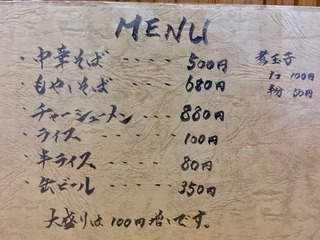 MENU
・中華そば ---- 500円
・もやしそば ---- 680円
・チャーシューメン --- 880円
・ライス ----- 100円
・半ライス ----- 80円
・缶ビール ----- 350円
大盛りは100円増しです。
煮玉子
1コ 100円
半分 50円